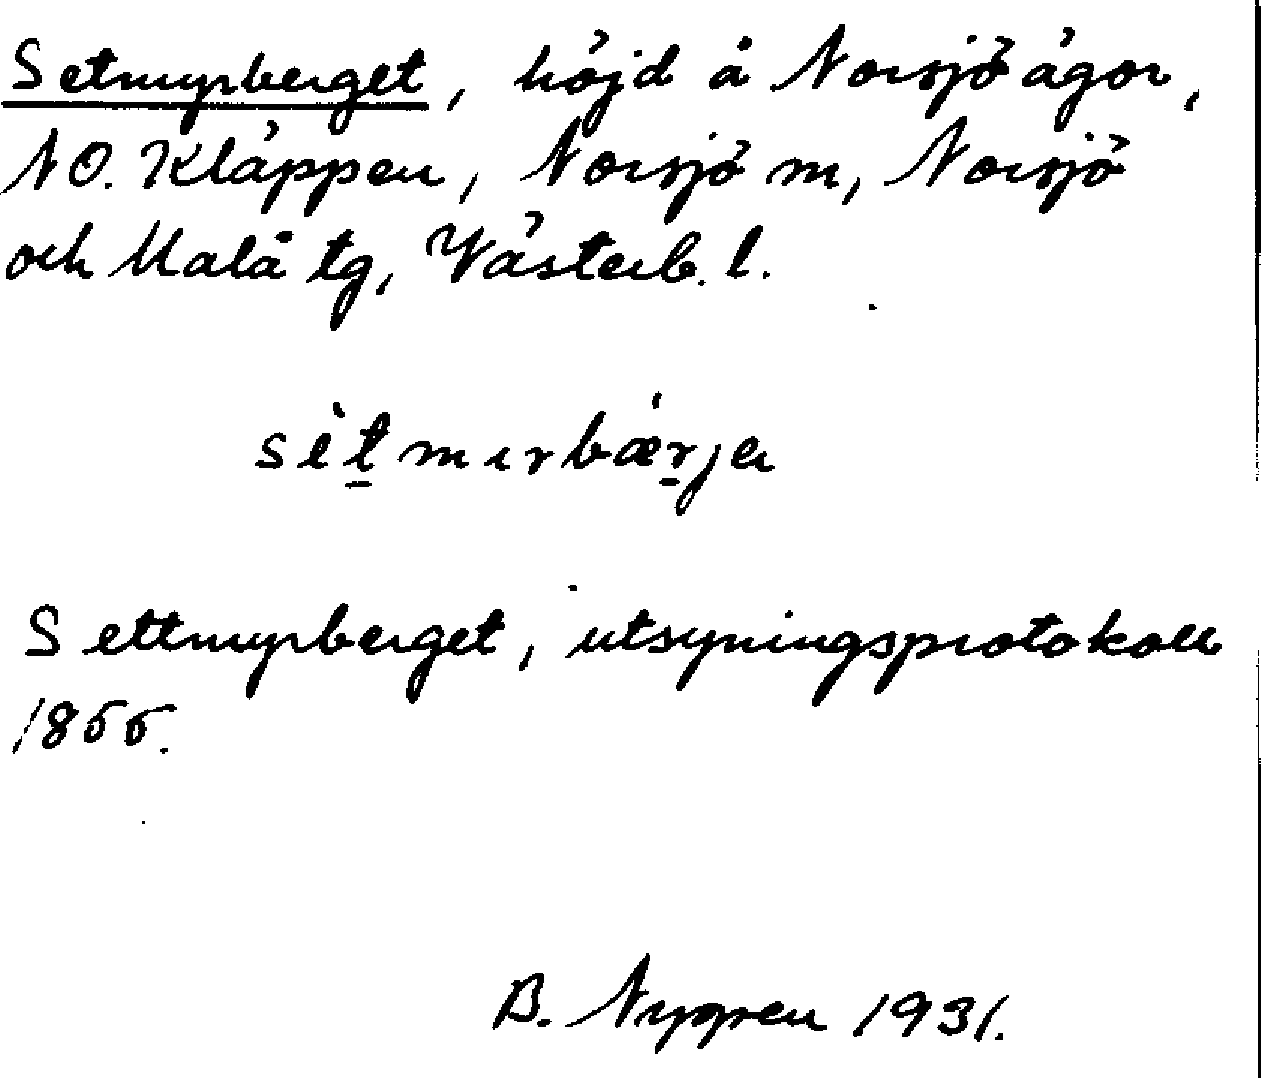 Setmyrberget, höjd å Norsjö ägor,
NO. Kläppen, Norsjö sn, Norsjö
och Malå tg, Västerb. l.
sètmırbǽrja
Settmyrberget, utsyningsprotokoll
1855.
B. Nygren 1931.